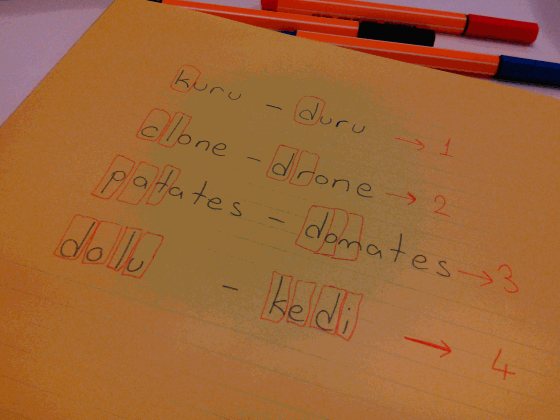 kuru - duru → 1
clone - drone → 2
patates - domates → 3
dolu - kedi → 4